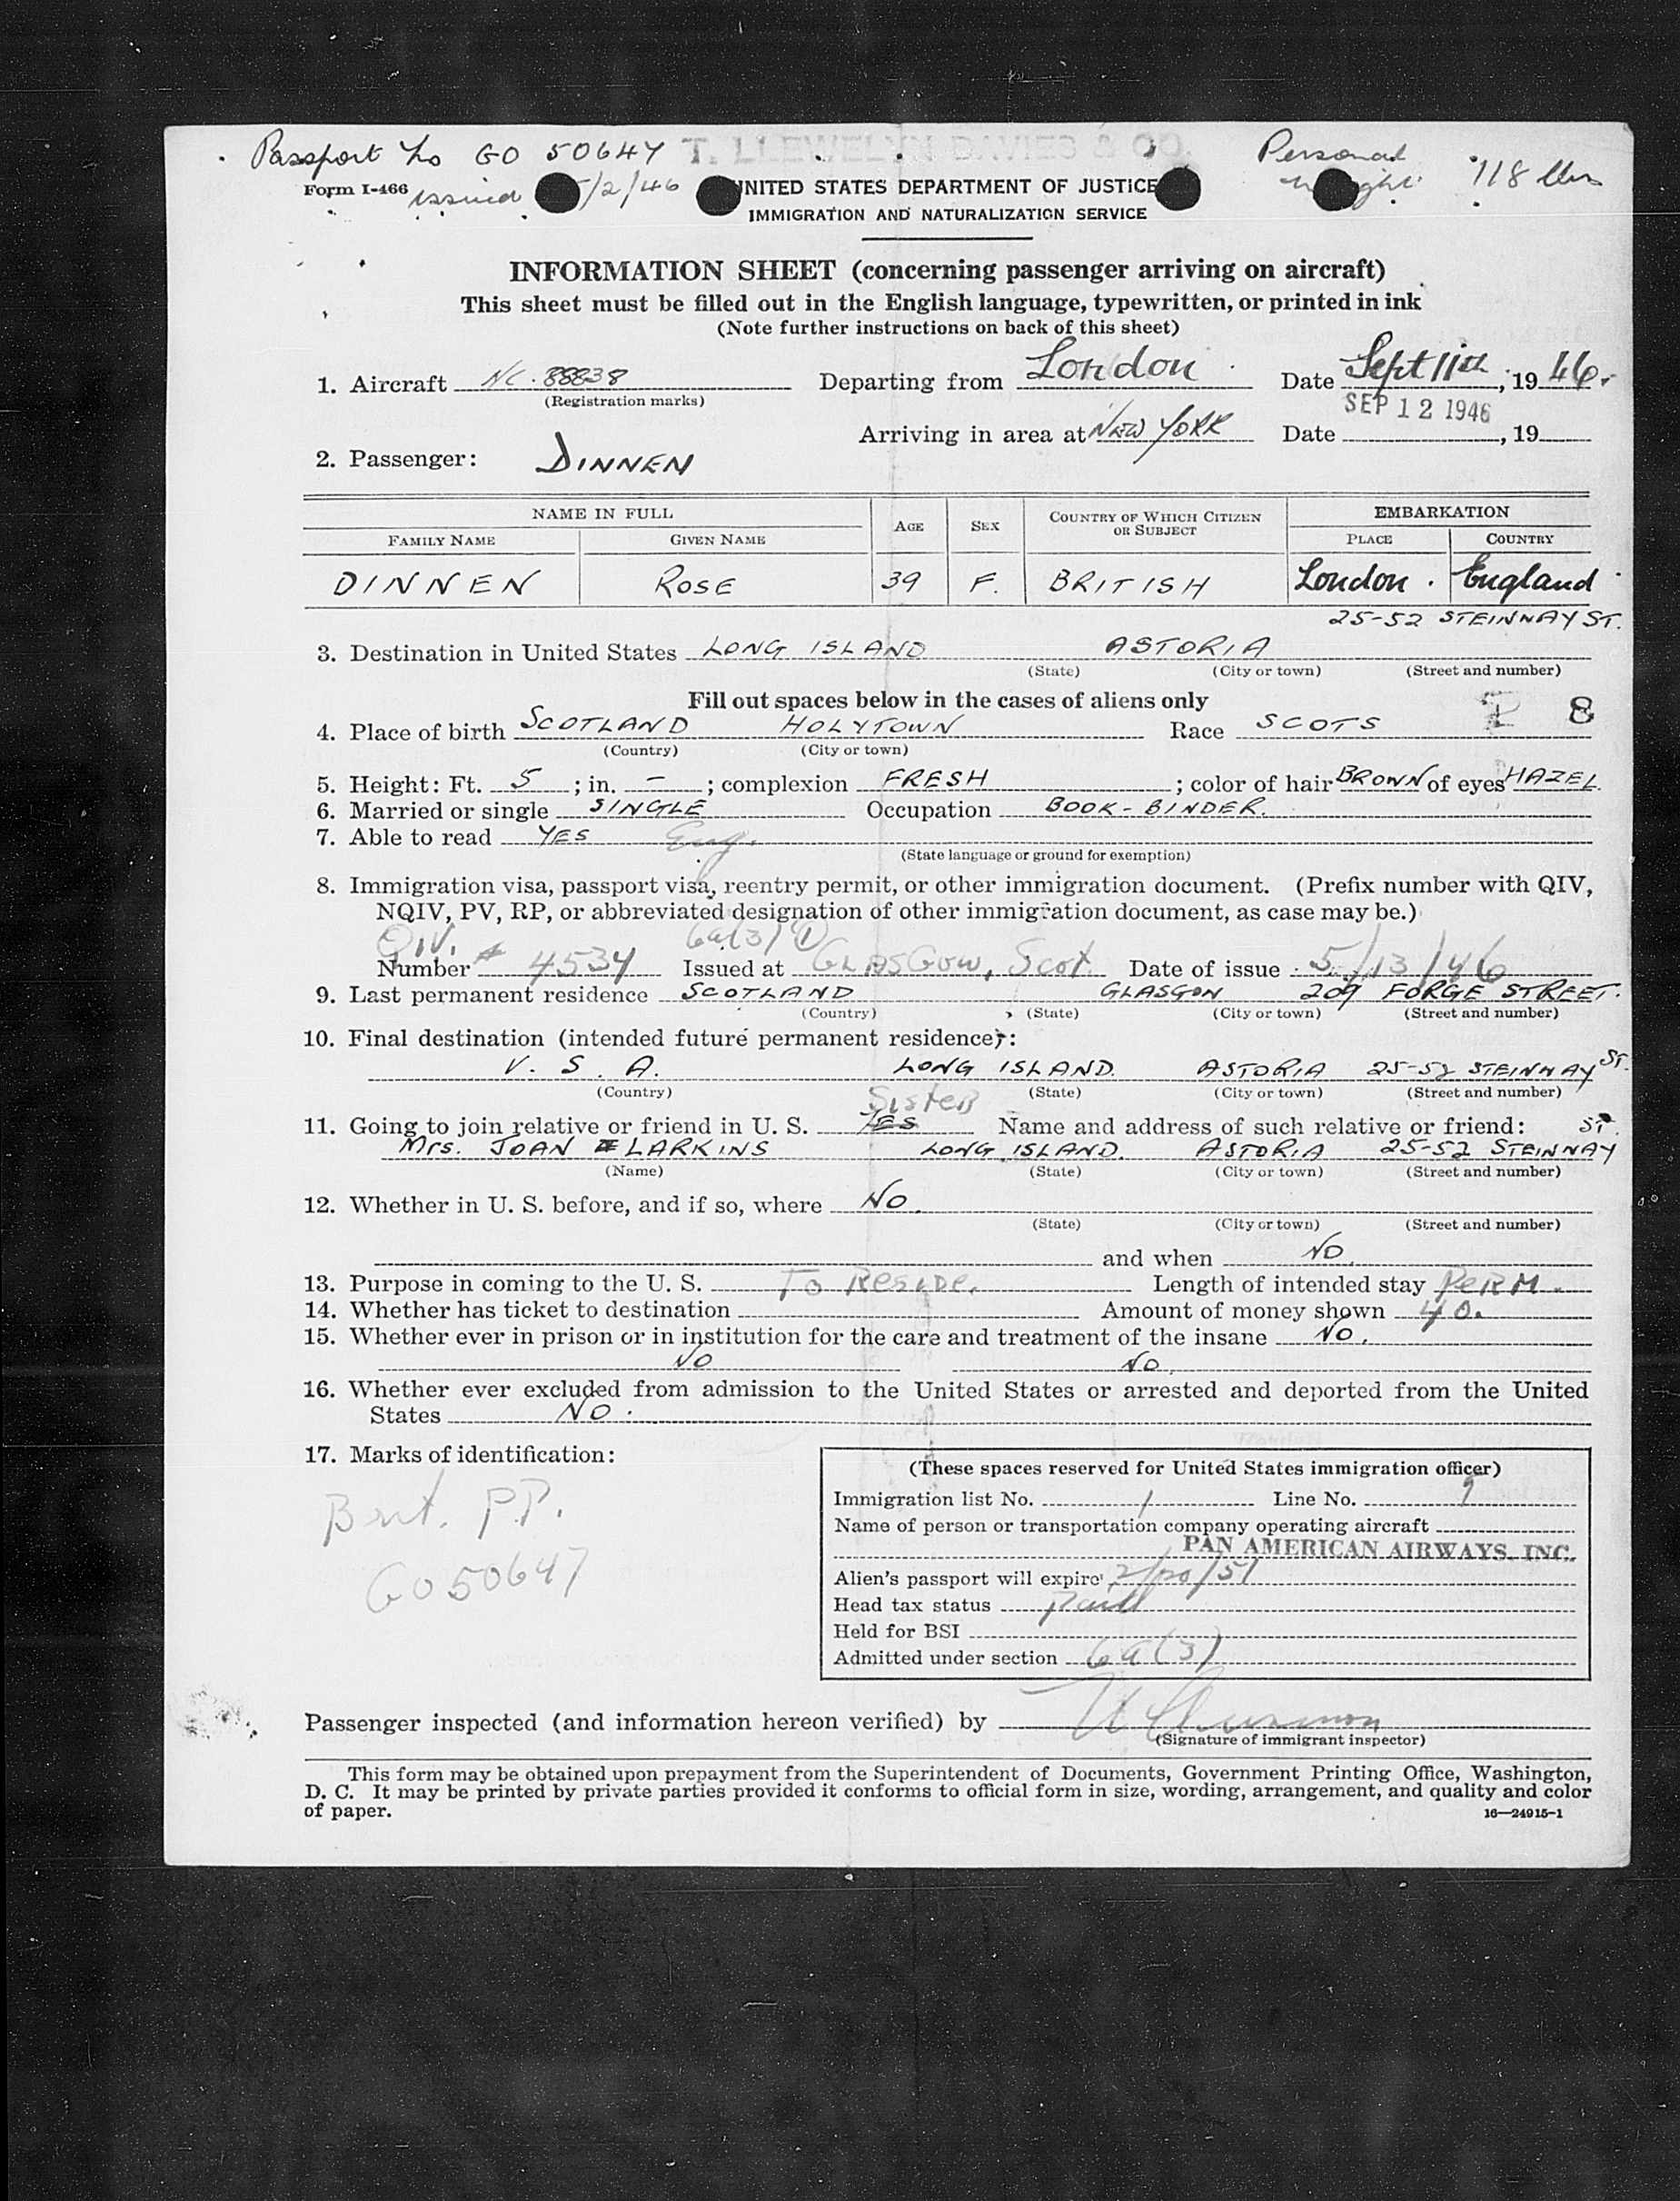 Passport No GO 50647 T. LLEWELYN DAVIES & CO. Personal
Form I-466 issued /2/46 UNITED STATES DEPARTMENT OF JUSTICE weight 118 lbs
IMMIGRATION AND NATURALIZATION SERVICE
INFORMATION SHEET (concerning passenger arriving on aircraft)
This sheet must be filled out in the English language, typewritten, or printed in ink
(Note further instructions on back of this sheet)
1. Aircraft NC. 88838 Departing from London. Date Sept 11th, 1946.
(Registration marks)
SEP 12 1946
Arriving in area at NEW YORK Date , 19
2. Passenger: DINNEN
NAME IN FULL AGE SEX COUNTRY OF WHICH CITIZEN OR SUBJECT EMBARKATION
FAMILY NAME GIVEN NAME PLACE COUNTRY
DINNEN ROSE 39 F. BRITISH London. England
25-52 STEINWAY ST.
3. Destination in United States LONG ISLAND ASTORIA
(State) (City or town) (Street and number)
Fill out spaces below in the cases of aliens only
4. Place of birth SCOTLAND HOLYTOWN Race SCOTS 8
(Country) (City or town)
5. Height: Ft. 5; in. –; complexion FRESH; color of hair BROWN of eyes HAZEL.
6. Married or single SINGLE Occupation BOOK-BINDER.
7. Able to read YES Eng.
(State language or ground for exemption)
8. Immigration visa, passport visa, reentry permit, or other immigration document. (Prefix number with QIV,
NQIV, PV, RP, or abbreviated designation of other immigration document, as case may be.)
QIV. 6a(3) ①
Number # 4534 Issued at GLASGOW, Scot. Date of issue 5/13/46
9. Last permanent residence SCOTLAND GLASGOW 209 FORGE STREET.
(Country) (State) (City or town) (Street and number)
10. Final destination (intended future permanent residence):
U. S. A. LONG ISLAND. ASTORIA 25-52 STEINWAY ST.
(Country) (State) (City or town) (Street and number)
Sister
11. Going to join relative or friend in U. S. YES Name and address of such relative or friend: ST.
Mrs. JOAN LARKINS LONG ISLAND. ASTORIA 25-52 STEINWAY
(Name) (State) (City or town) (Street and number)
12. Whether in U. S. before, and if so, where NO.
(State) (City or town) (Street and number)
and when NO.
13. Purpose in coming to the U. S. To Reside. Length of intended stay PERM.
14. Whether has ticket to destination Amount of money shown 40.
15. Whether ever in prison or in institution for the care and treatment of the insane NO.
NO NO.
16. Whether ever excluded from admission to the United States or arrested and deported from the United
States NO.
17. Marks of identification:
Brit. P.P.
GO50647
(These spaces reserved for United States immigration officer)
Immigration list No. 1 Line No. 9
Name of person or transportation company operating aircraft
PAN AMERICAN AIRWAYS, INC.
Alien's passport will expire 2/20/51
Head tax status Paid
Held for BSI
Admitted under section 6a(3)
Passenger inspected (and information hereon verified) by
(Signature of immigrant inspector)
This form may be obtained upon prepayment from the Superintendent of Documents, Government Printing Office, Washington,
D. C. It may be printed by private parties provided it conforms to official form in size, wording, arrangement, and quality and color
of paper. 16—24915-1